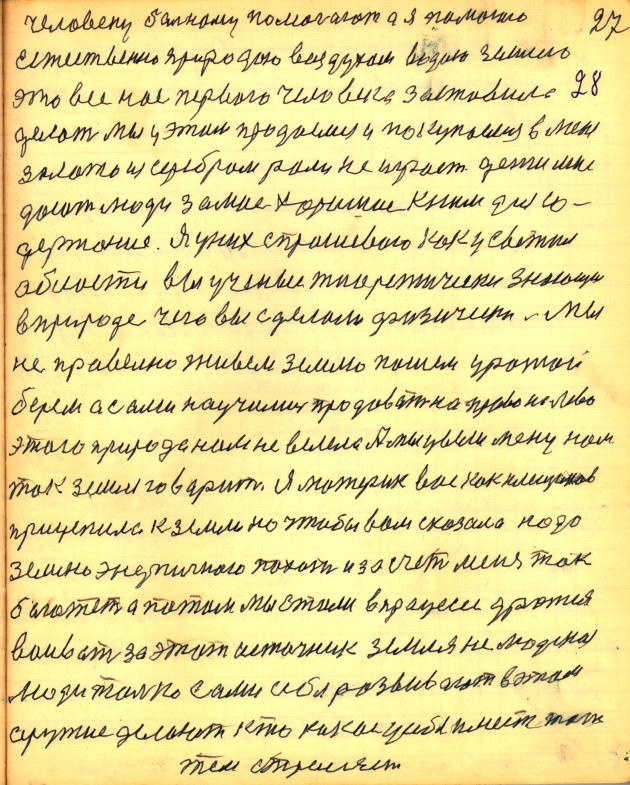 человеку балному помогают а я помогаю 27
естественно природою воздухом водою землею
это все нас первого человека заставила 28
делат мы у этом продаемся и покупаемся в меня
золото и серебром роли не играет денги мне
дают люди за мае хорошае к ним для со-
держание. Я у них спрашеваю как у светил
области вы ученые теоретически знающи
в природе чего вы сделали физически. Мы
не правелно живем землю пашем урожай
берем а сами научилис продоват на право на лево
этого природа нам не велела А мы ввели мену нам
так земля говарит. Я материк вас как клещуков
прицепила к земли но чтобы вам сказала надо
землю энергично похать и за счет меня так
богатет а потом мы стали в працесе дратся
воиват за этот источник земля не людская
люди толко сами себя розвивают в этом
оружие делают кто какое у себя имеет
тем стреляет